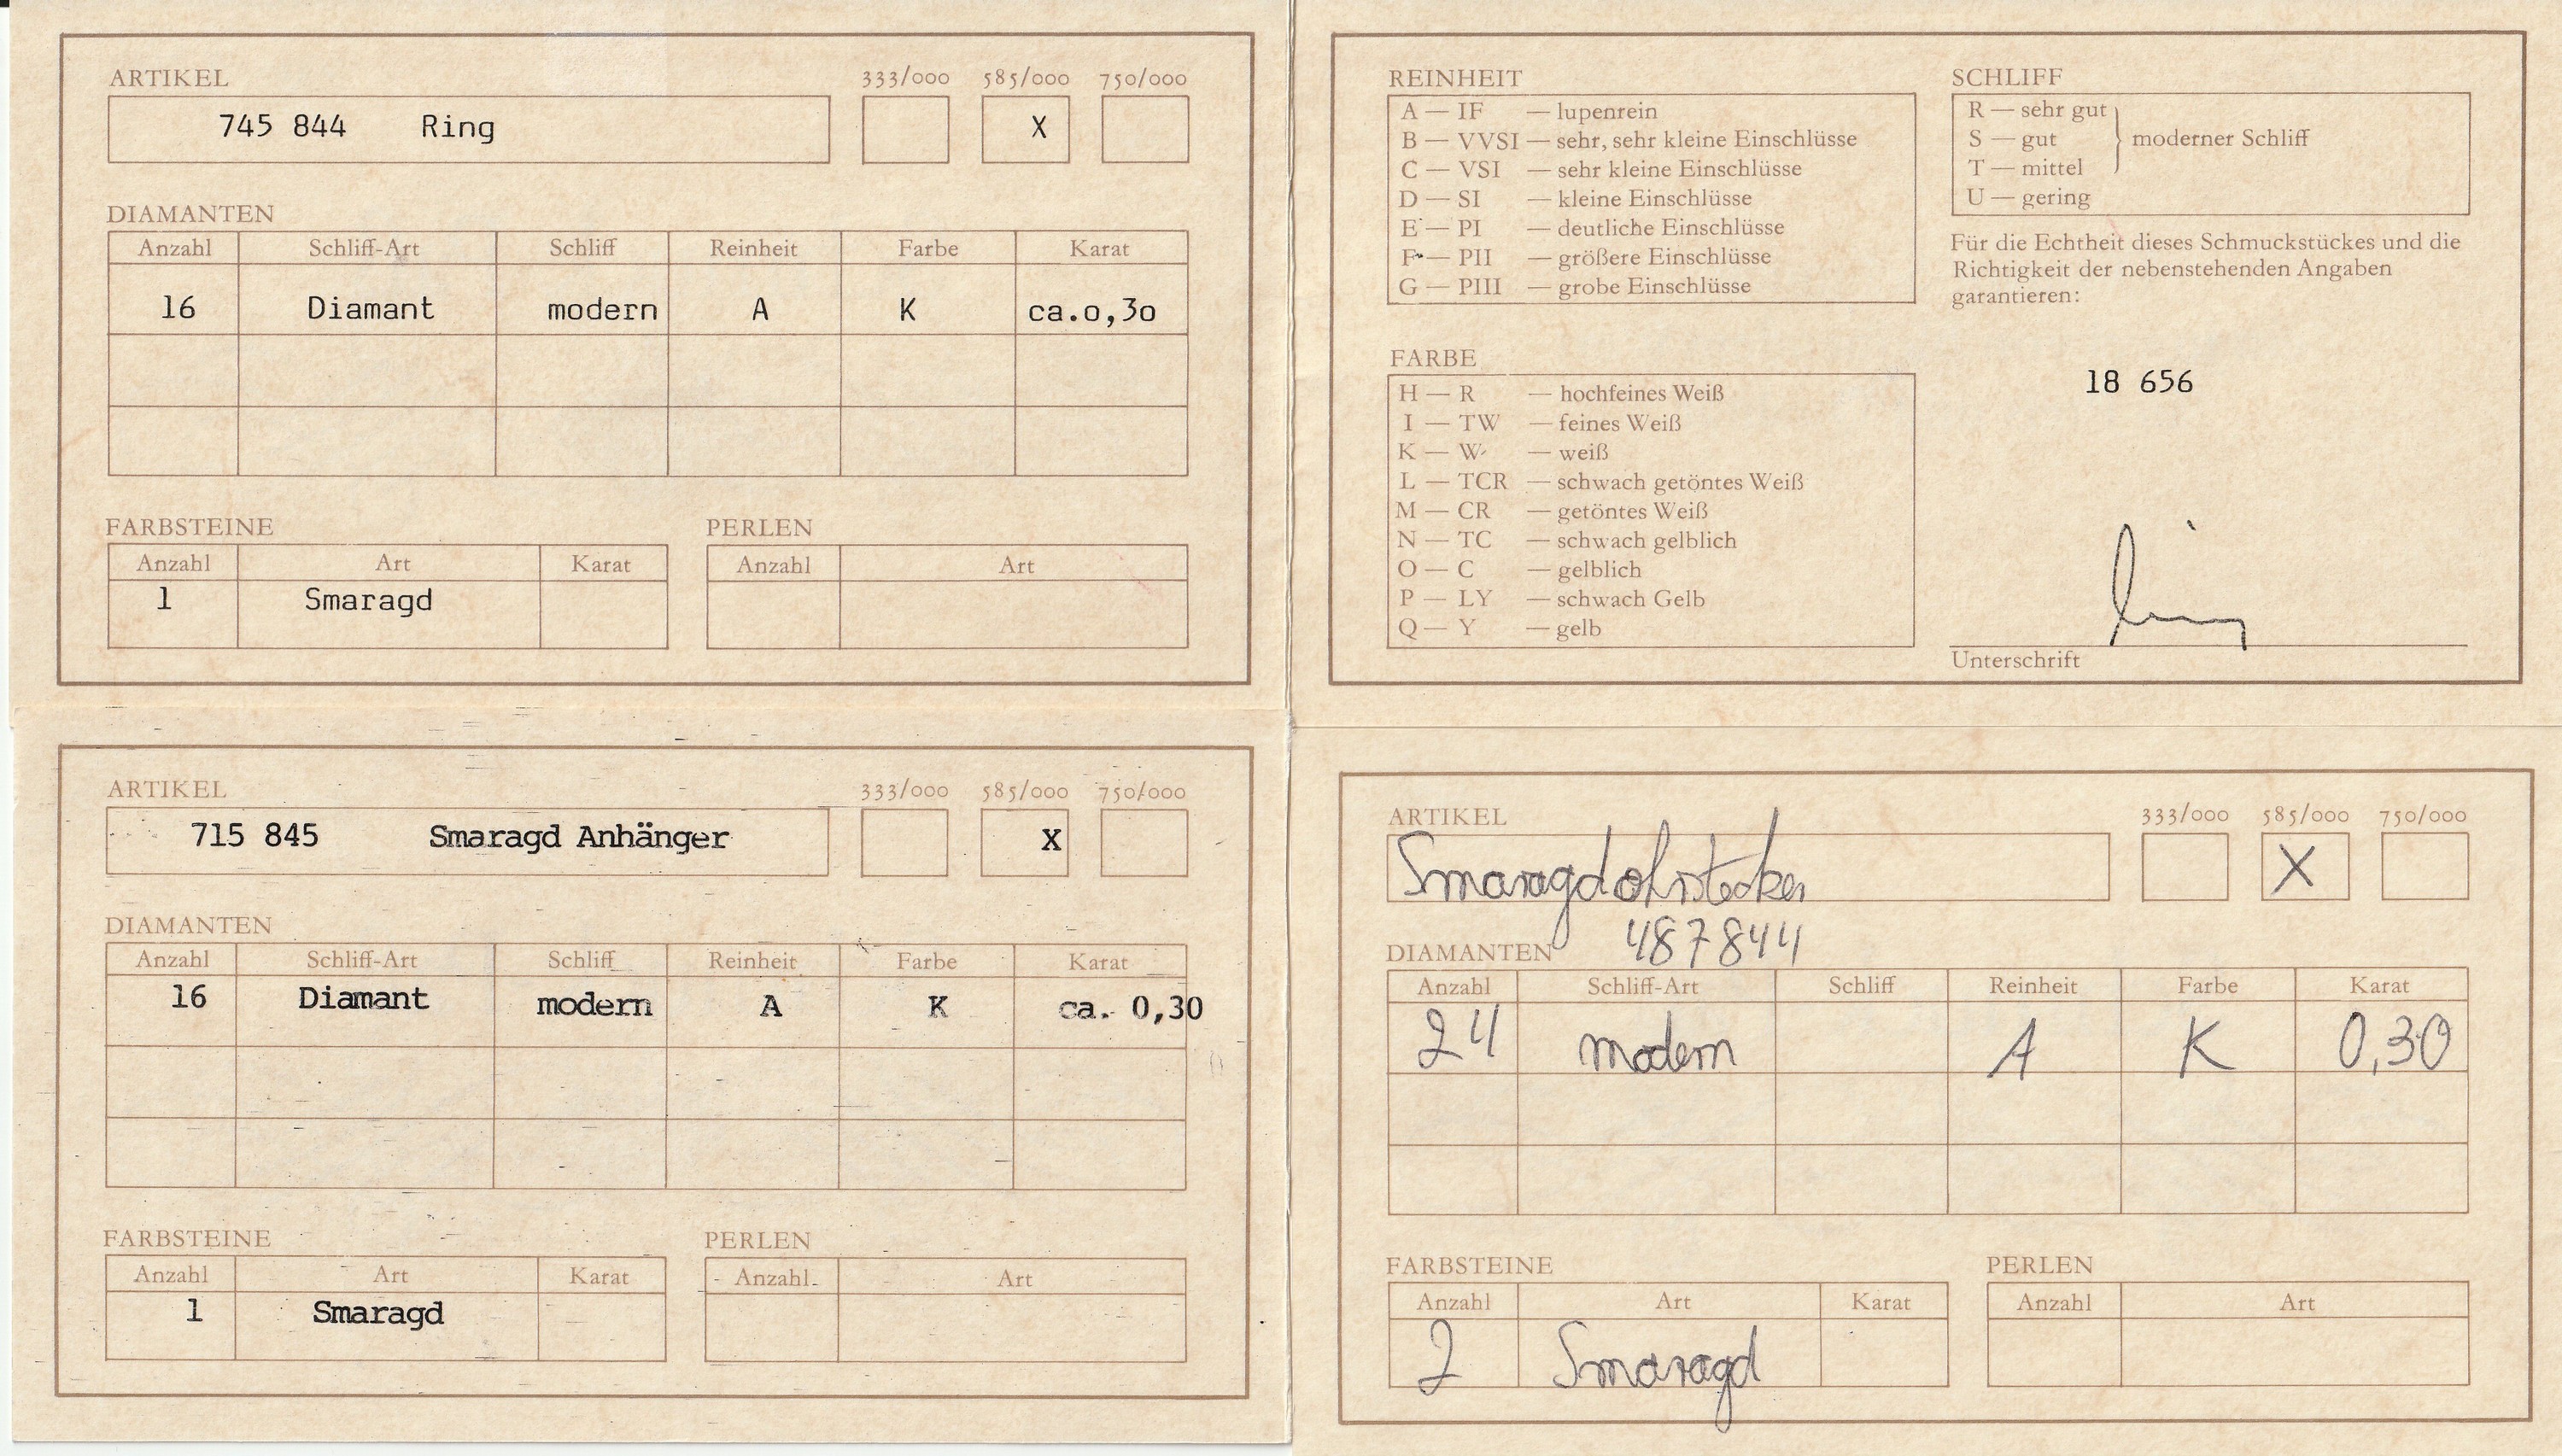 ARTIKEL 333/000 585/000 750/000
745 844 Ring X
DIAMANTEN
Anzahl Schliff-Art Schliff Reinheit Farbe Karat
16 Diamant modern A K ca.o,3o
FARBSTEINE PERLEN
Anzahl Art Karat Anzahl Art
1 Smaragd
REINHEIT
A — IF — lupenrein
B — VVSI — sehr, sehr kleine Einschlüsse
C — VSI — sehr kleine Einschlüsse
D — SI — kleine Einschlüsse
E — PI — deutliche Einschlüsse
F — PII — größere Einschlüsse
G — PIII — grobe Einschlüsse
FARBE
H — R — hochfeines Weiß
I — TW — feines Weiß
K — W — weiß
L — TCR — schwach getöntes Weiß
M — CR — getöntes Weiß
N — TC — schwach gelblich
O — C — gelblich
P — LY — schwach Gelb
Q — Y — gelb
SCHLIFF
R — sehr gut
S — gut moderner Schliff
T — mittel
U — gering
Für die Echtheit dieses Schmuckstückes und die
Richtigkeit der nebenstehenden Angaben
garantieren:
18 656
Unterschrift
ARTIKEL 333/000 585/000 750/000
715 845 Smaragd Anhänger X
DIAMANTEN
Anzahl Schliff-Art Schliff Reinheit Farbe Karat
16 Diamant modern A K ca. 0,30
FARBSTEINE PERLEN
Anzahl Art Karat Anzahl Art
1 Smaragd
ARTIKEL 333/000 585/000 750/000
Smaragdohrstecker X
487844
DIAMANTEN
Anzahl Schliff-Art Schliff Reinheit Farbe Karat
24 modern A K 0,30
FARBSTEINE PERLEN
Anzahl Art Karat Anzahl Art
2 Smaragd